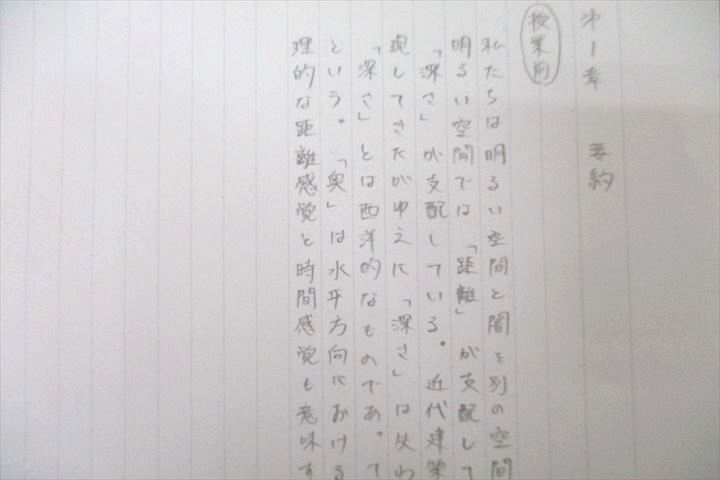 第1章　要約
授業前
私たちは明るい空間と闇を別の空間
明るい空間では「距離」が支配して
「深さ」が支配している。近代建築
現してきたがゆえに「深さ」は失わ
「深さ」とは西洋的なものであって
という。「奥」は水平方向における
理的な距離感覚と時間感覚も意味す